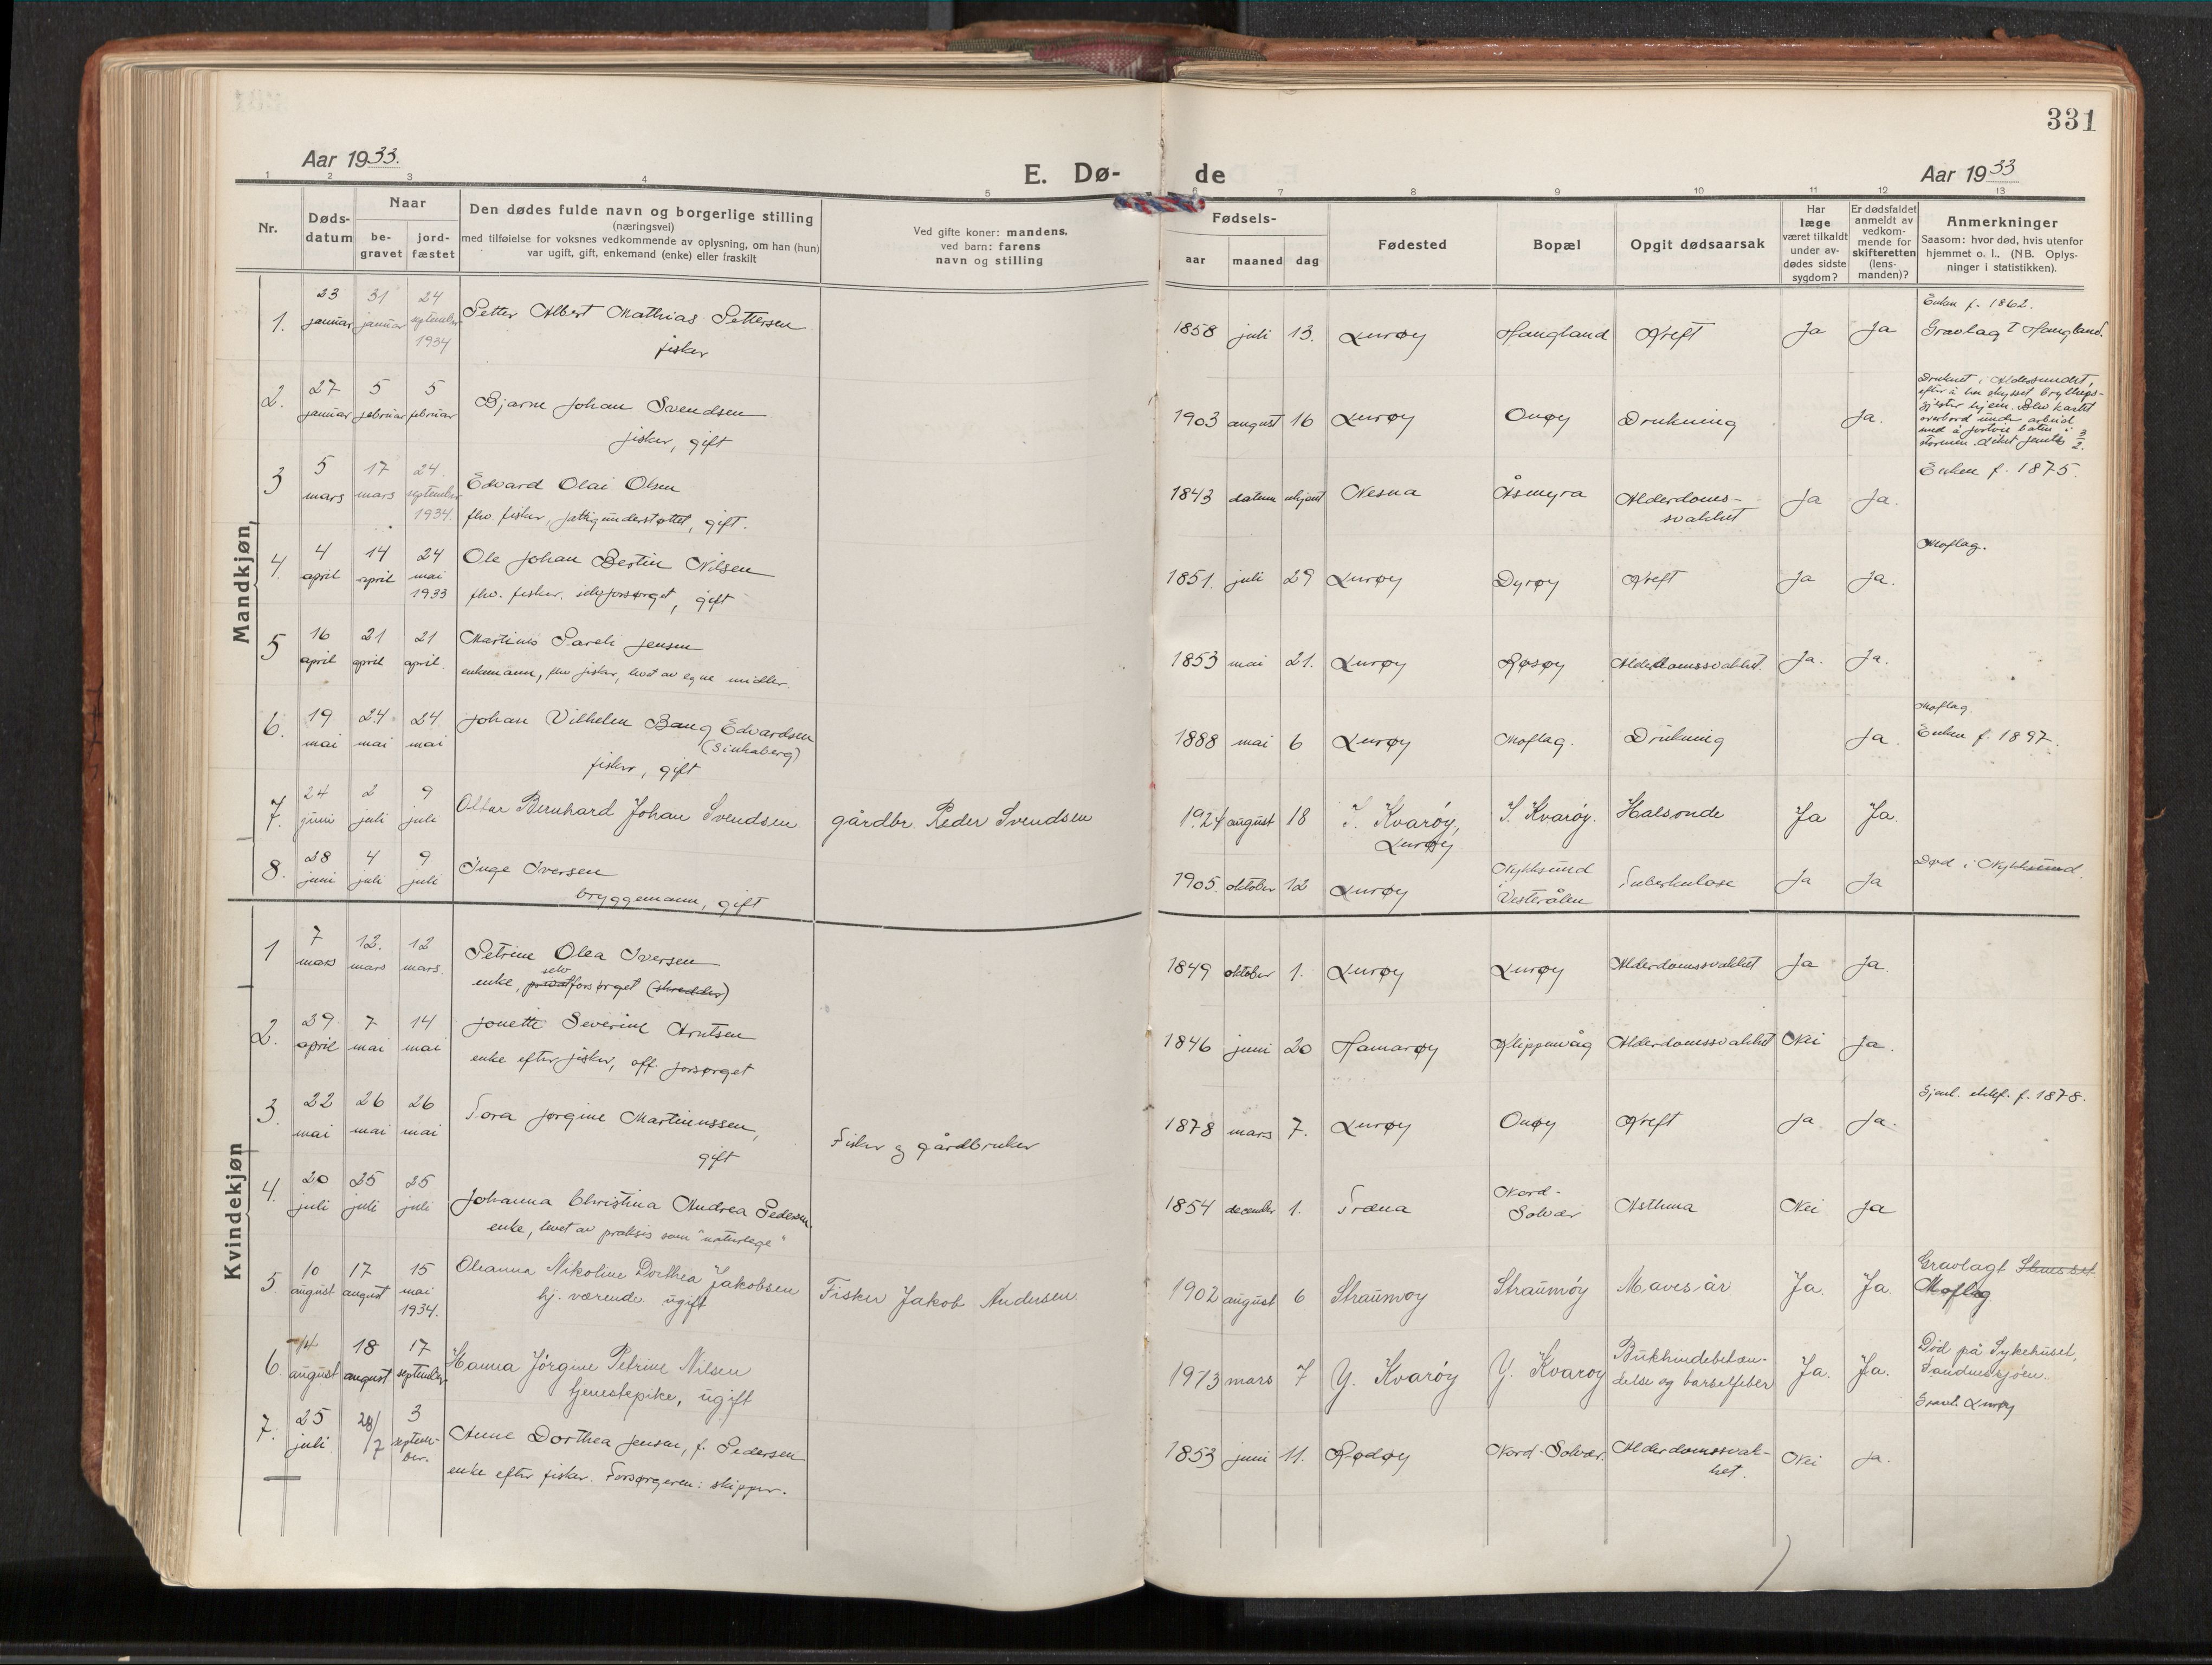 331
Aar 1933.
E. Dø-
de
Aar 1933
1 2 3 4 5 6 7 8 9 10 11 12 13
Nr.
Døds-
datum
Naar
be-
gravet
jord-
fæstet
Den dødes fulde navn og borgerlige stilling
(næringsvei)
med tilføielse for voksnes vedkommende av oplysning, om han (hun)
var ugift, gift, enkemand (enke) eller fraskilt
Ved gifte koner: mandens.
ved barn: farens
navn og stilling
Fødsels-
aar maaned dag
Fødested
Bopæl
Opgit dødsaarsak
Har
læge
været tilkaldt
under av-
dødes sidste
sygdom?
Er dødsfaldet
anmeldt av
vedkom-
mende for
skifteretten
(lens-
manden)?
Anmerkninger
Saasom: hvor død, hvis utenfor
hjemmet o. l., (NB. Oplys-
ninger i statistikken).
Mandkjøn
1. 23 januar 31 januar 24 september 1934 Petter Albert Mathias Pettersen
fisker
1858 juli 13. Lurøy Haugland Kreft Ja Ja
Enken f. 1862.
Gravlagt Haugland.
2. 27 januar 5 februar 5 februar Bjarne Johan Svendsen
fisker, gift
1903 august 16 Lurøy Onøy Drukning Ja.
Druknet i Aldersundet,
efter å ha skysset bryllups-
gjester hjem. Blev kastet
overbord under arbeid
med å fortøie båten i
stormen. Liket funnet 3/2.
3 5 mars 17 mars 24. september 1934. Edvard Olai Olsen
fhv. fisker, fattigunderstøttet, gift.
1843 datum ukjent Nesna Åsmyra Alderdoms-
svakhet Ja Ja.
Enken f. 1875.
4. 4 april 14 april 24 mai 1933 Ole Johan Bertin Nilsen
fhv. fisker. selvforsørget, gift
1851. juli 29 Lurøy Dyrøy Kreft Ja Ja.
Moflag.
5 16 april 21 april 21 april. Martinus Pareli Jensen
enkemann, fhv fisker, levet av egne midler.
1853 mai 21. Lurøy Røsøy Alderdomssvakhet. Ja. Ja.
6. 19 mai 24 mai 24 mai Johan Vilhelm Bang Edvardsen
(Sinkaberg)
fisker, gift
1888 mai 6 Lurøy Moflag. Drukning Ja.
Moflag.
Enken f. 1897.
7. 24 juni 2 juli 9 juli Ottar Bernhard Johan Svendsen gårdbr. Peder Svendsen
1924 august 18 I. Kvarøy,
Lurøy I. Kvarøy. Halsonde Ja Ja.
8. 28 juni 4 juli 9 juli Inge Iversen
bryggemann, gift
1905. oktober 12 Lurøy Nykksund
i
Vesterålen Tuberkulose Ja Ja
Død i Nykksund.
Kvindekjøn
1 7 mars 12. mars 12 mars. Petrine Olea Iversen
enke, privat selv forsørget (skredder)
1849 oktober 1. Lurøy Lurøy Alderdomssvakhet Ja Ja.
2. 29. april 7 mai 14 mai Jonette Severine Arntsen
enke efter fisker, off. forsørget
1846 juni 20 Hamarøy Klippenvåg Alderdomssvakhet Nei Ja.
3. 22 mai 26 mai 26 mai Tora Jørgine Martinussen,
gift
Fisker og gårdbruker
1878 mars 7. Lurøy Onøy Kreft Ja Ja.
Gjenl. ektef. f. 1878.
4. 20 juli 25 juli 25 juli Johanna Christina Andrea Pedersen
enke, levet av praksis som "naturlege"
1854 december 1. Træna Nord-
Solvær Asthma Nei Ja
5 10 august 17 august 15 mai 1934. Oleanna Nikoline Dorthea Jakobsen
hj. værende ugift
Fisker Jakob Andersen
1902 august 6 Straumøy Straumøy Mavesår Ja. Ja.
Gravlagt Stuesset
Moflag
6. 14 august 18 august 17 september Hanna Jörgine Petrine Nilsen
tjenestepike, ugift
1913 mars 7 Y. Kvarøy Y. Kvarøy Bukhindebetæn-
delse og barselfeber Ja. Ja.
Död på Sykehuset,
Sandnessjöen.
Gravl. Lurøy
7. 25 juli 28/7 3 septem-
ber. Anne Dorthea Jensen, f. Pedersen
enke efter fisker. Forsørgeren: skipper.
1853 juni 11. Rødøy Nord-Solvær. Alderdomssvak-
het. Nei Ja.